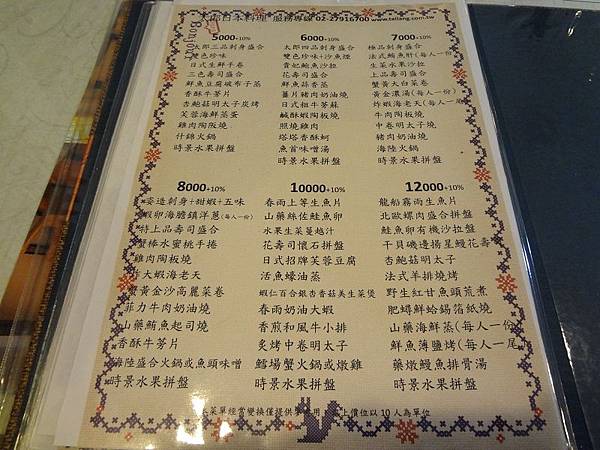 太郎日本料理 服務專線 02-27916700 www.tailang.com.tw
Bonjour
5000+10%
太郎三品刺身盛合
雙色珍味
日式生鮮手卷
三色壽司盛合
鮮魚豆腐破布子蒸
香酥牛蒡片
杏鮑菇明太子炭烤
芙蓉海鮮蒸蛋
雞肉陶阪燒
什錦火鍋
時景水果拼盤
6000+10%
太郎四品刺身盛合
雙色珍味+沙魚煙
貴妃鮑魚沙拉
花壽司盛合
鮮魚蒜香蒸
薑片豬肉奶油燒
日式粗牛蒡蘇
鹹酥蝦陶板燒
照燒雞肉
塔塔香酥蚵
魚首味噌湯
時景水果拼盤
7000+10%
極品刺身盛合
法式鮪魚肝(每人一份
生菜水果沙拉
上品壽司盛合
蟹黃天白菜卷
黃金濃湯(每人一份)
炸蝦海老天(每人
牛肉陶板燒
中卷明太子燒
豬肉奶油燒
海陸火鍋
時景水果拼盤
8000+10%
姿造刺身+甜蝦+五味
蝦卵海膽鎮洋蔥(每人一份)
特上品壽司盛合
蟹棒水蜜桃手捲
雞肉陶板燒
炸大蝦海老天
蟹黃金沙高麗菜卷
菲力牛肉奶油燒
山藥鮪魚起司燒
香酥牛蒡片
海陸盛合火鍋或魚頭味噌
時景水果拼盤
10000+10%
春雨上等生魚片
山藥絲佐鮭魚卵
水果生菜蔓越汁
花壽司懷石拼盤
日式招牌芙蓉豆腐
活魚蠔油蒸
蝦仁百合銀杏香菇美生菜煲
春雨奶油大蝦
香煎和風牛小排
炙烤中卷明太子
鱘場蟹火鍋或燉雞
時景水果拼盤
12000+10%
龍船霧雨生魚片
北歐螺肉盛合拼盤
鮭魚卵有機沙拉盤
干貝磯邊揚星鰻花壽
杏鮑菇明太子
法式羊排燒烤
野生紅甘魚頭荒煮
肥蟳鮮蛤錫箔紙燒
山藥海鮮蒸(每人一份
鮮魚薄鹽烤(每人一尾
藥燉鰻魚排骨湯
時景水果拼盤
菜單經常變換僅提供參考用 以上價位以10人為單位